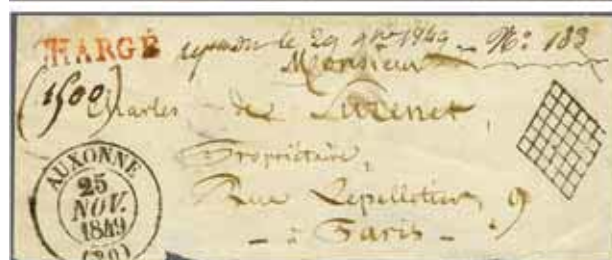 CHARGÉ
répondu le 29 9bre 1849 _ N°: 183
Monsieur
(1500) Charles de
Propriétaire,
Rue Lepelletier, 9
- à Paris -
AUXONNE
25
NOV.
1849
(20)